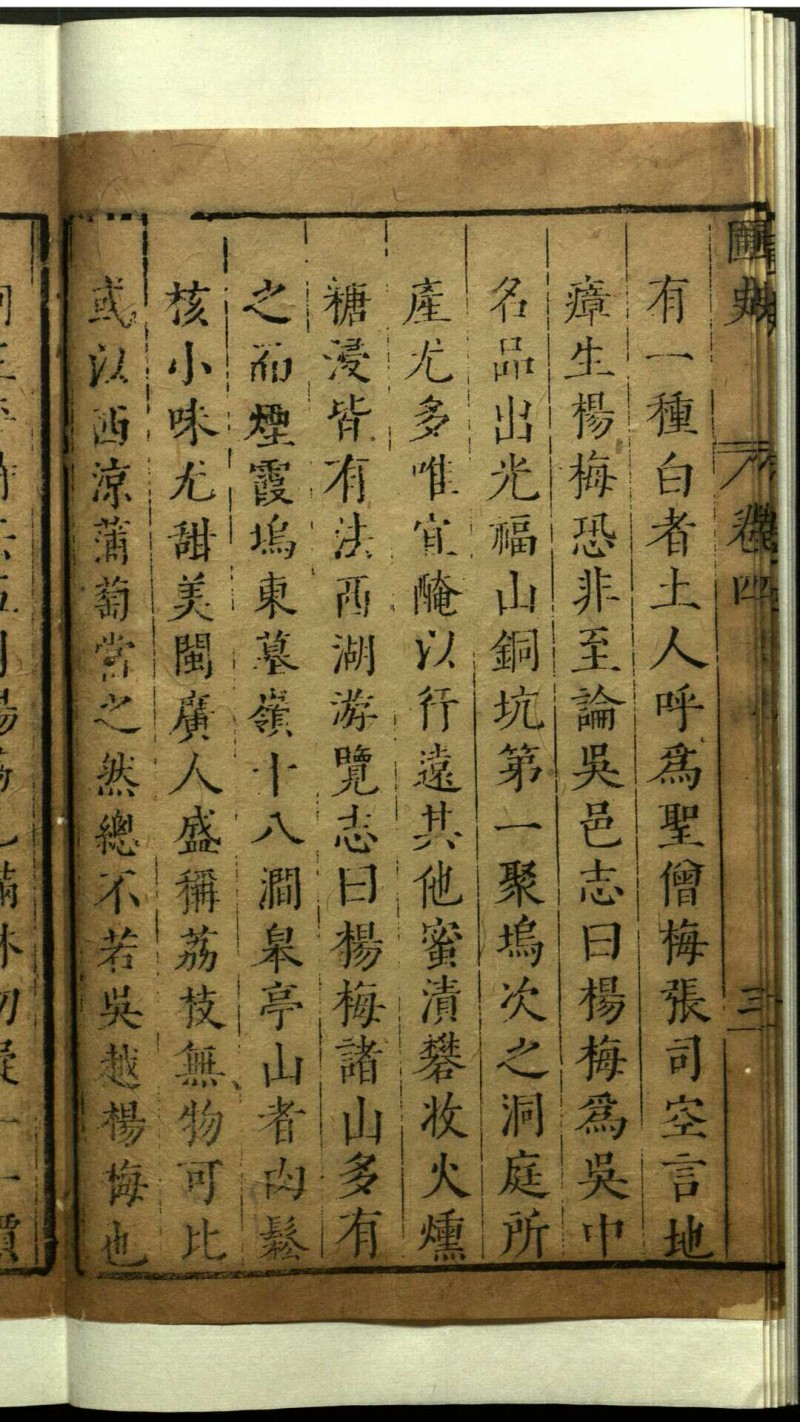 圃史 卷四 三
有一種白者土人呼爲聖僧梅張司空言地
瘴生楊梅恐非至論吳邑志曰楊梅爲吳中
名品出光福山銅坑第一聚塢次之洞庭所
產尤多唯宜醃以行遠其他蜜漬礬收火燻
糖浸皆有法西湖游覽志曰楊梅諸山多有
之而煙霞塢東墓嶺十八澗皋亭山者肉鬆
核小味尤甜美閩廣人盛稱荔枝無物可比
或以西涼蒲萄當之然總不若吳越楊梅也